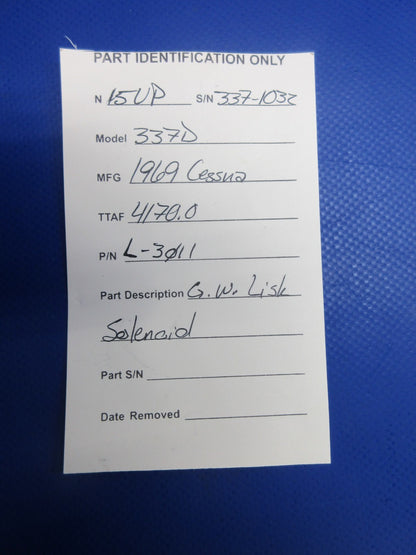 PART IDENTIFICATION ONLY
N 15UP S/N 337-1032
Model 337D
MFG 1969 Cessna
TTAF 4170.0
P/N L-3011
Part Description G.W. Lisk
Solenoid
Part S/N
Date Removed